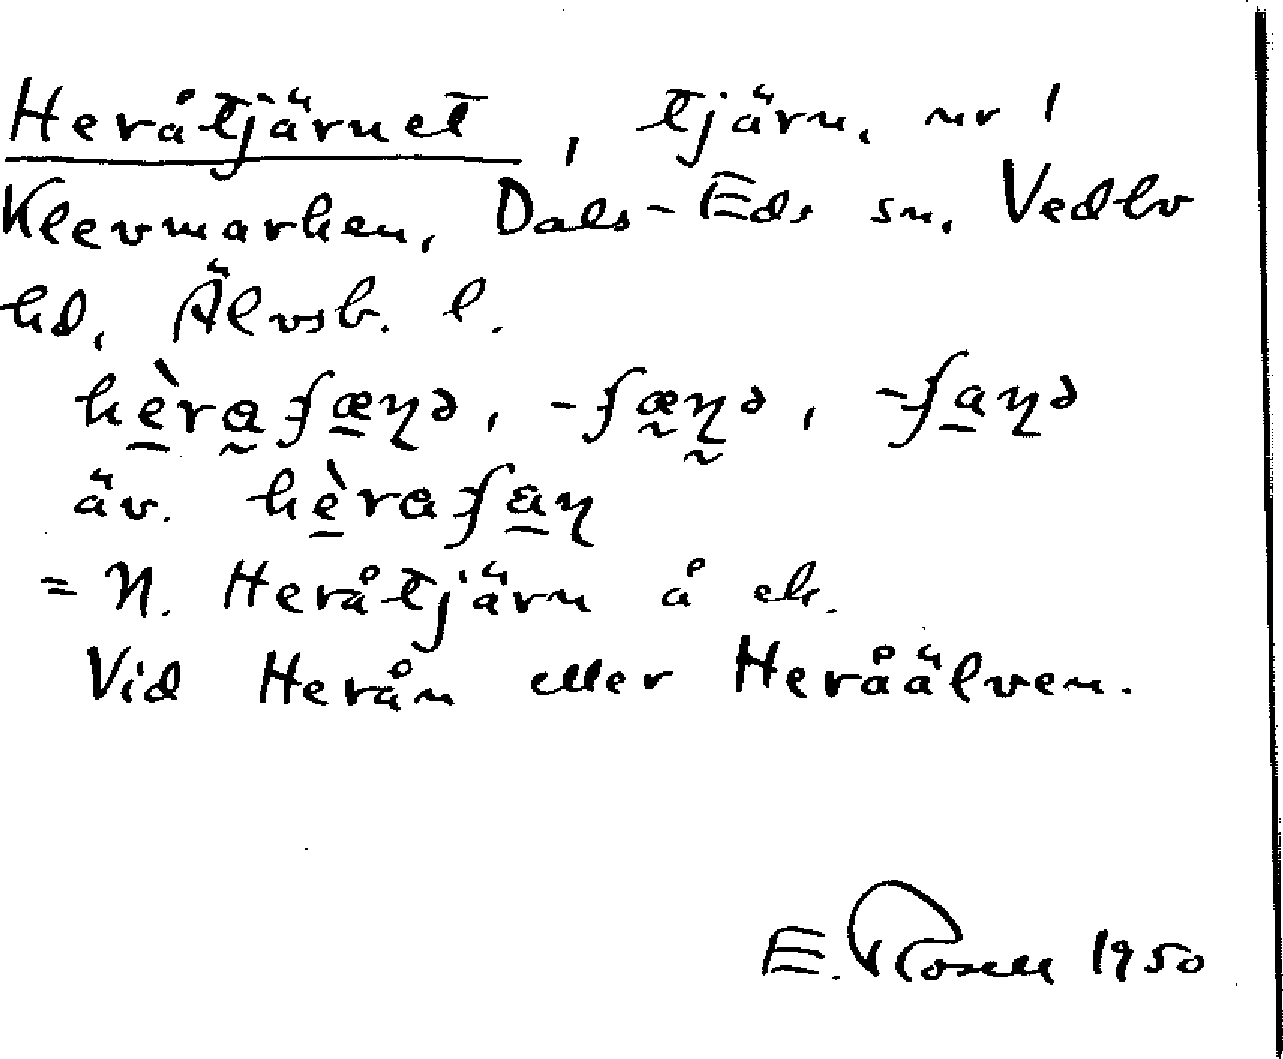 Heråtjärnet, tjärn, nr 1
Klevmarken, Dals-Eds sn, Vedbo
hd, Älvsb. l.
hèraʄæŋə, -ʄæŋə, -ʄaŋə
äv. hèraʄaŋ
= N. Heråtjärn å ek.
Vid Herån eller Heråälven.
E. Rosell 1950